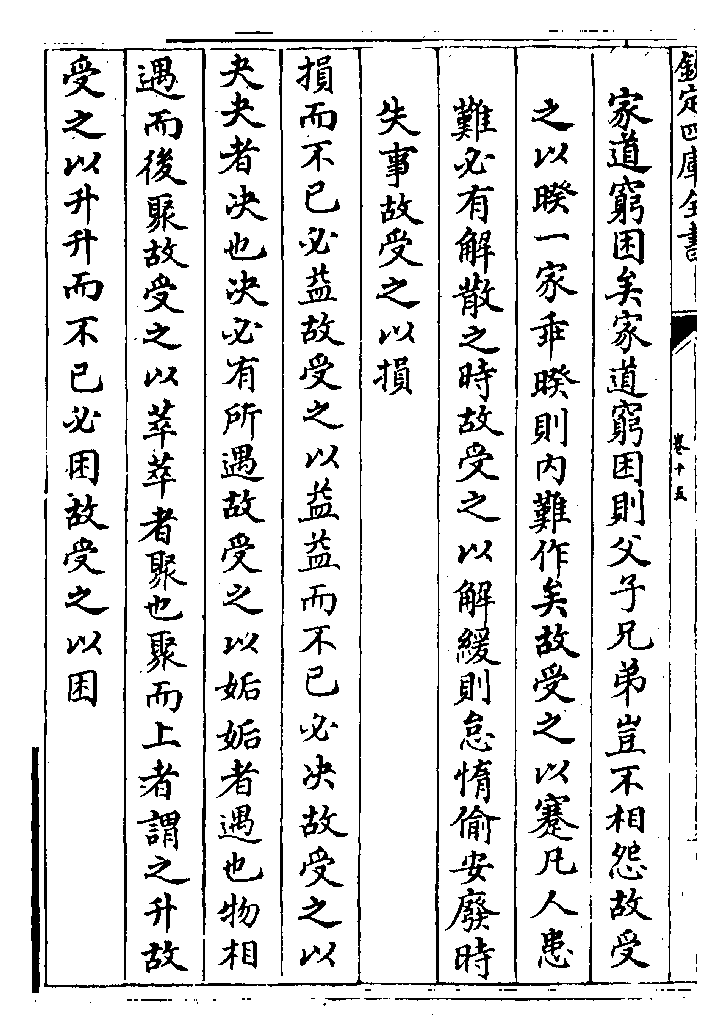 欽定四庫全書
卷十五
家道窮困矣家道窮困則父子兄弟豈不相怨故受
之以睽一家乖睽則内難作矣故受之以蹇凡人患
難必有解散之時故受之以解緩則怠惰偷安廢時
失事故受之以損
損而不已必益故受之以益益而不已必决故受之以
夬夬者决也决必有所遇故受之以姤姤者遇也物相
遇而後聚故受之以萃萃者聚也聚而上者謂之升故
受之以升升而不已必困故受之以困